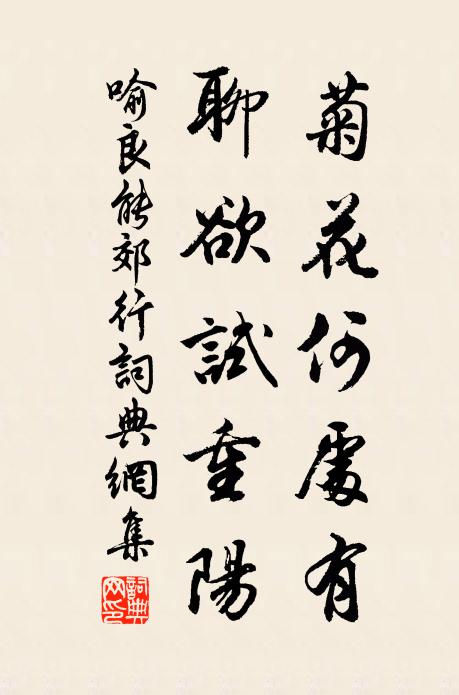 菊花何處有
聊欲試重陽
喻良能郊行詞典網集
詞典網印